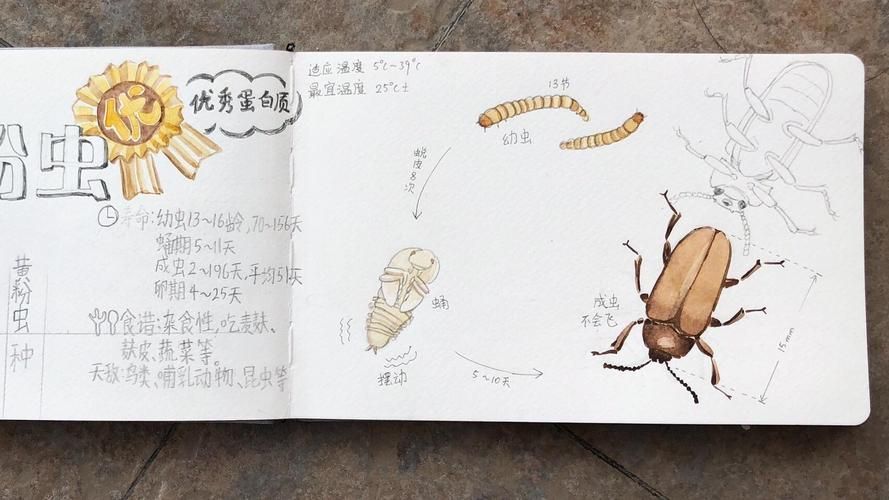 优
优秀蛋白质
粉虫
寿命:幼虫13~16龄,70~156天
蛹期5~11天
成虫2~196天,平均51天
卵期4~25天
黄粉虫
种
食谱:杂食性,吃麦麸、
麸皮、蔬菜等。
天敌:鸟类、哺乳动物、昆虫等
适应温度 5℃~39℃
最宜温度 25℃±
13节
幼虫
蜕皮8次
蛹
摆动
5~10天
成虫
不会飞
15mm